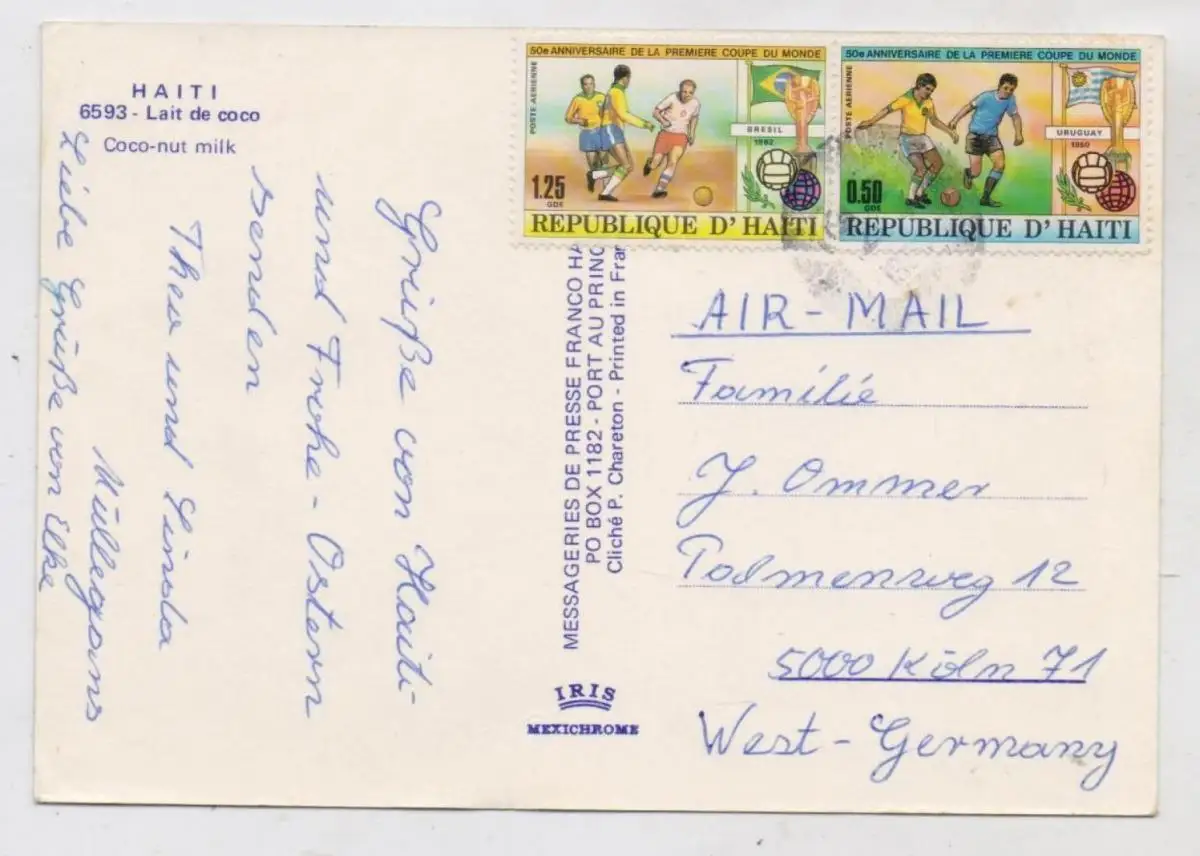 HAITI
6593 - Lait de coco
Coco-nut milk
Grüße von Haiti-
und Frohe - Ostern
senden
Theo und Linda
Müllegans
Liebe Grüße von Elke
MESSAGERIES DE PRESSE FRANCO HA
PO BOX 1182 - PORT AU PRINC
Cliché P. Chareton - Printed in Fran
IRIS
MEXICHROME
50e ANNIVERSAIRE DE LA PREMIERE COUPE DU MONDE
POSTE AERIENNE
BRESIL
1962
1.25
GDE
REPUBLIQUE D'HAITI
50e ANNIVERSAIRE DE LA PREMIERE COUPE DU MONDE
POSTE AERIENNE
URUGUAY
1950
0.50
GDE
REPUBLIQUE D'HAITI
AIR-MAIL
Familie
J. Ommer
12
5000 Köln 71
West-Germany